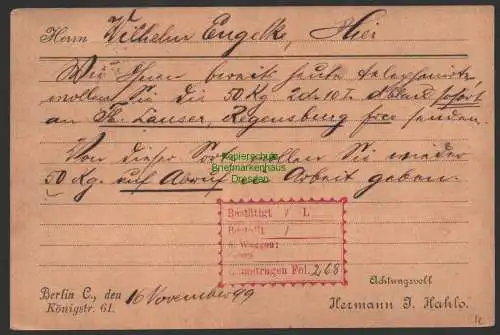 Herrn Wilhelm Engelke, Hier
Wie Ihnen bereits heute telephonirt,
wollen Sie die 50 Kg sofort
an Lauser, Regensburg free senden.
Von dieser wollen Sie wieder
50 Kg. auf Abruf Arbeit geben.
Kopierschutz
Briefmarkenhaus
Dresden
Bestätigt / L
Bestellt /
a. Waggon:
Fol. 268
Achtungsvoll
Berlin C., den 16 November 99
Königstr. 61.
Hermann J. Hahlo.